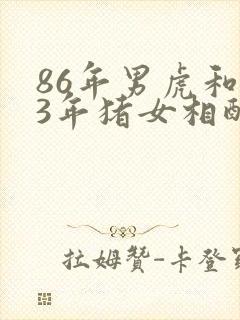 86年男虎和
3年猪女相配
拉姆贊-卡登